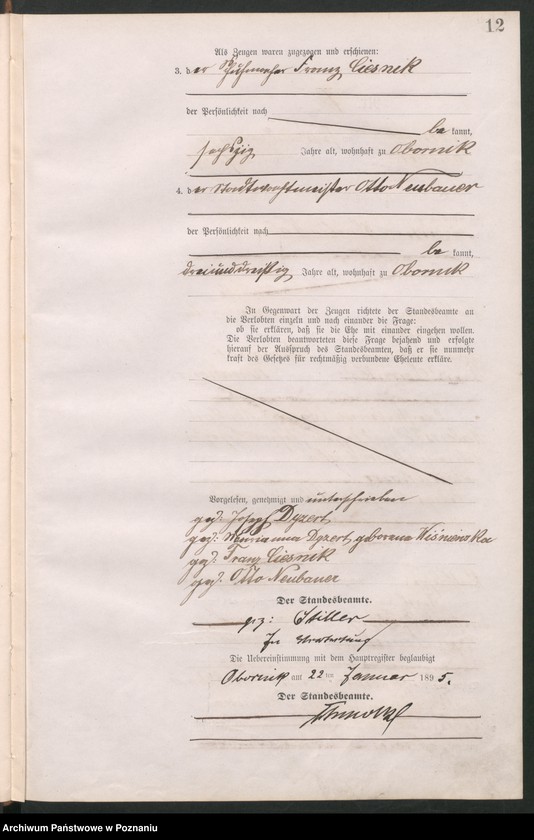 12
Als Zeugen waren zugezogen und erschienen:
3. der Schuhmacher Franz Ciesnik
der Persönlichkeit nach
be kannt,
sechzig Jahre alt, wohnhaft zu Obornik
4. der Stadtwachtmeister Otto Neubauer
der Persönlichkeit nach
be kannt,
dreiunddreißig Jahre alt, wohnhaft zu Obornik
In Gegenwart der Zeugen richtete der Standesbeamte an
die Verlobten einzeln und nach einander die Frage:
ob sie erklären, daß sie die Ehe mit einander eingehen wollen.
Die Verlobten beantworteten diese Frage bejahend und erfolgte
hierauf der Ausspruch des Standesbeamten, daß er sie nunmehr
kraft des Gesetzes für rechtmäßig verbundene Eheleute erkläre.
Vorgelesen, genehmigt und unterschrieben
gez. Joseph Dyzert
gez. Marianna Dyzert, geborene Wisniewska
gez. Franz Ciesnik
gez. Otto Neubauer
Der Standesbeamte.
gez: Stiller
In Vertretung
Die Uebereinstimmung mit dem Hauptregister beglaubigt
Obornik am 22ten Januar 1895.
Der Standesbeamte.
Archiwum Państwowe w Poznaniu